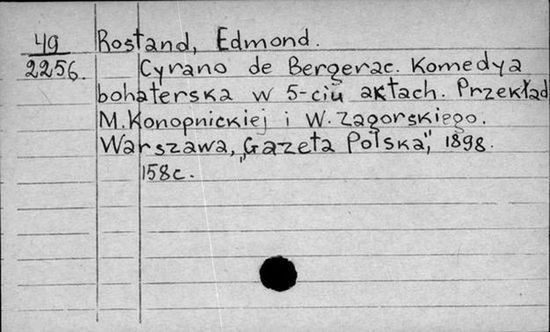 49 Rostand, Edmond.
2256. Cyrano de Bergerac. Komedya
bohaterska w 5-ciu aktach. Przekład
M. Konopnickiej i W. Zagorskiego.
Warszawa, „Gazeta Polska", 1898.
158c.